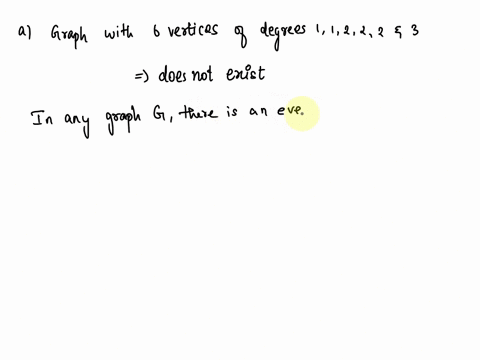 a) Graph with 6 vertices of degrees 1, 1, 2, 2, 2 & 3
=> does not exist
In any graph G, there is an eve